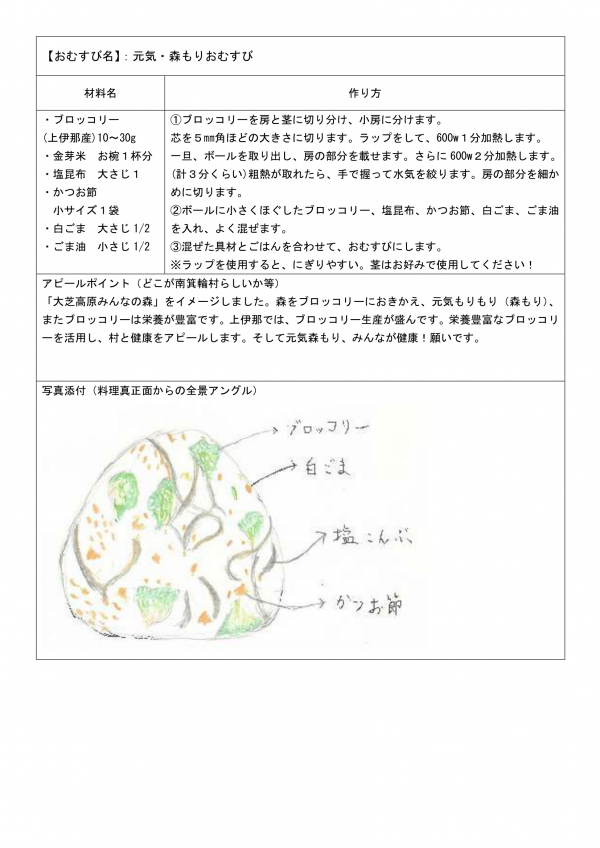 【おむすび名】：元気・森もりおむすび
材料名
作り方
・ブロッコリー
(上伊那産)10～30g
・金芽米　お椀１杯分
・塩昆布　大さじ１
・かつお節
　小サイズ１袋
・白ごま　大さじ1/2
・ごま油　小さじ1/2
①ブロッコリーを房と茎に切り分け、小房に分けます。
芯を５㎜角ほどの大きさに切ります。ラップをして、600w１分加熱します。
一旦、ボールを取り出し、房の部分を載せます。さらに600w２分加熱します。
(計３分くらい)粗熱が取れたら、手で握って水気を絞ります。房の部分を細か
めに切ります。
②ボールに小さくほぐしたブロッコリー、塩昆布、かつお節、白ごま、ごま油
を入れ、よく混ぜます。
③混ぜた具材とごはんを合わせて、おむすびにします。
※ラップを使用すると、にぎりやすい。茎はお好みで使用してください！
アピールポイント（どこが南箕輪村らしいか等）
「大芝高原みんなの森」をイメージしました。森をブロッコリーにおきかえ、元気もりもり（森もり）、
またブロッコリーは栄養が豊富です。上伊那では、ブロッコリー生産が盛んです。栄養豊富なブロッコリ
ーを活用し、村と健康をアピールします。そして元気森もり、みんなが健康！願いです。
写真添付（料理真正面からの全景アングル）
ブロッコリー
白ごま
塩こんぶ
かつお節